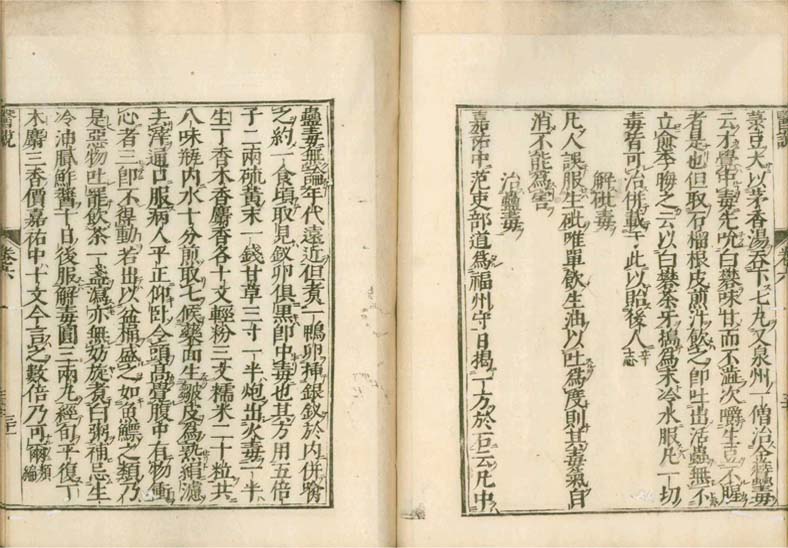 菉豆大以茅香湯吞下七九又泉州一僧治金蠶毒
云才覺中毒先吮白礬味甘而不澁次嚼生豆不腥
者是也但取石榴根皮煎汁飲之即吐出活蟲無不
立愈李晦之云以白礬茶牙搗為末冷水服凡一切
毒者可治併載于此以貽後人
解砒毒
凡人誤服生砒唯單飲生油以吐為度則其毒氣自
消不能為害
治蠱毒
嘉祐中范吏部道為福州守日揭一方於石云凡中
蠱毒無論年代遠近但煮一鴨卵插銀釵於內併噙
之約一食頃取見釵卵俱黑即中毒也其方用五倍
子二兩硫黃末一錢甘草三寸一半炮出火毒一半
生丁香木香麝香各十文輕粉三文糯米二十粒共
八味瓶內水十分煎取七候藥面生皺皮為熟絹濾
去滓通口服病人平正仰臥令頭高覺腹中有物衝
心者三即不得動若出以盆桶盛之如魚鰾之類乃
是惡物吐罷飲茶一盞瀉亦無妨旋煮白粥補忌生
冷油膩鮓醬十日後服解毒圓三兩丸經旬平復丁
木麝三香價嘉祐中十文今言之數倍乃可
類編
醫說
卷六